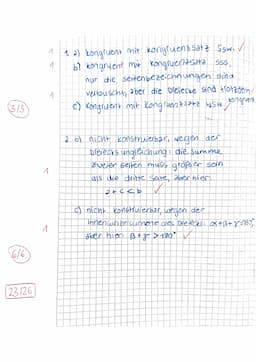 1 1. a) kongruent mit kongruenzsatz Ssw. ✓
1 b) kongruent mit kongruenzsatz sss,
nur die seitenbezeichnungen sind
vertauscht, aber die Dreiecke sind trotzdem
kongruent ✓
1 c) kongruent mit kongruenzsatz wsw ✓
3/3
2. b) nicht konstruierbar, wegen der
Dreiecksungleichung: die summe
zweier seiten muss größer sein
1 als die dritte seite, aber hier:
a+c<b ✓
c) nicht konstruierbar, wegen der
1 innenwinkelsumme des Dreiecks: α+β+γ=180°,
aber hier: β+γ>180° ✓
6/6
23/26